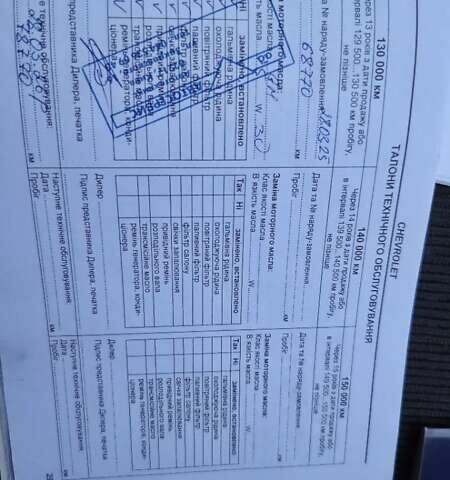 CHEVROLET
ТАЛОНИ ТЕХНІЧНОГО ОБСЛУГОВУВАННЯ
130 000 км
Через 13 років з дати продажу або
в інтервалі 129 500...130 500 км пробігу,
не пізніше
Дата та № наряду-замовлення
18.03.25
68770
км
Заміна моторного масла:
W 30
Так Ні
замінено, встановлено
гальмівна рідина
охолоджуюча рідина
повітряний фільтр
паливний фільтр
представника Дилера, печатка
технічне обслуговування:
78770
км
140 000 км
Через 14 років з дати продажу або
в інтервалі 139 500...140 500 км пробігу,
не пізніше
Дата та № наряду-замовлення
Пробіг
км
Заміна моторного масла:
Клас якості масла
В'язкість масла W
Так Ні
замінено, встановлено
гальмівна рідина
охолоджуюча рідина
повітряний фільтр
паливний фільтр
фільтр салону
свічки запалювання
привідний ремінь
розподільного вала
трансмісійне масло
ремінь генератора, конди-
ціонера
Дилер
Підпис представника Дилера, печатка
Наступне технічне обслуговування:
Дата
Пробіг км
150 000 км
Через 15 років з дати продажу або
в інтервалі 149 500...150 500 км пробігу,
не пізніше
Дата та № наряду-замовлення
Пробіг
км
Заміна моторного масла:
Клас якості масла
В'язкість масла W
Так Ні
замінено, встановлено
гальмівна рідина
охолоджуюча рідина
повітряний фільтр
паливний фільтр
фільтр салону
свічки запалювання
привідний ремінь
розподільного вала
трансмісійне масло
ремінь генератора, конди-
ціонера
Дилер
Підпис представника Дилера, печатка
Наступне технічне обслуговування:
Дата
Пробіг км